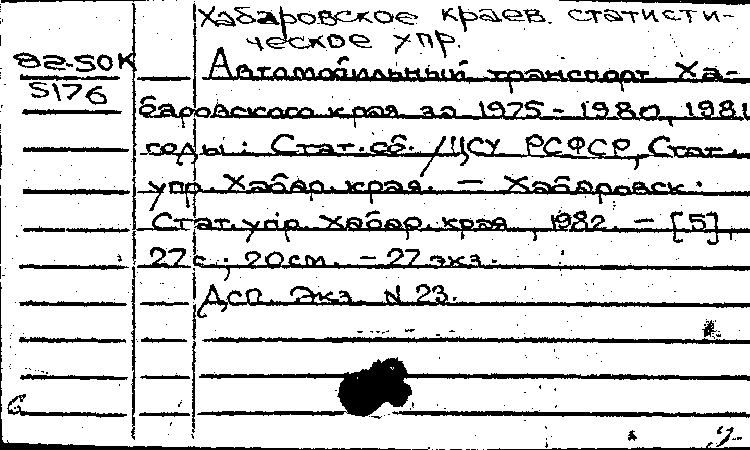 Хабаровское краев. статисти-
ческое упр.
82-50К
5176
Автомобильный транспорт Ха-
баровского края за 1975-1980, 1981
годы: Стат.сб. /ЦСУ РСФСР, Стат.
упр. Хабар. края. — Хабаровск:
Стат. упр. Хабар. края, 1982. — [5],
27 с.; 20 см. — 27 экз.
Дсп. Экз. N 23.